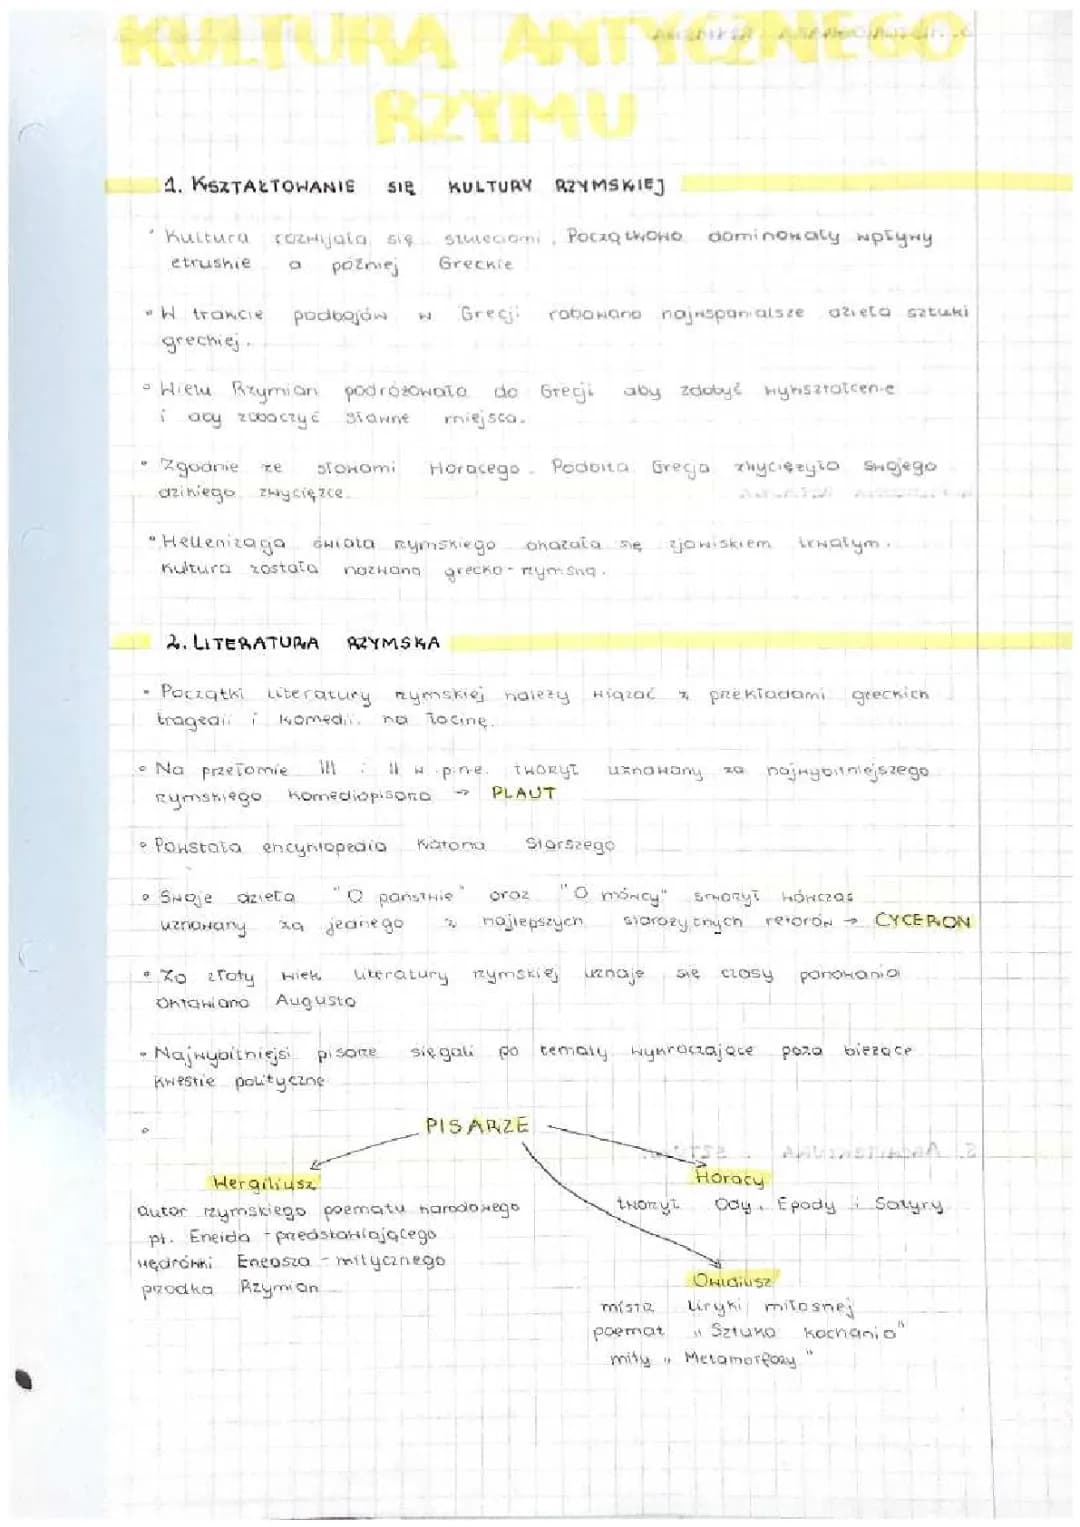 KULTURA ANTYCZNEGO
RZYMU
1. KSZTAŁTOWANIE SIĘ KULTURY RZYMSKIEJ
• Kultura rozwijała się stuleciami. Początkowo dominowały wpływy
etruskie a później Greckie
• W trakcie podbojów w Grecji rabowano najwspanialsze dzieła sztuki
greckiej.
• Wielu Rzymian podróżowało do Grecji aby zdobyć wykształcenie
i aby zobaczyć sławne miejsca.
• Zgodnie ze słowami Horacego. Podbita Grecja zwyciężyła swojego
dzikiego zwycięzce.
• Hellenizacja świata rzymskiego okazała się zjawiskiem trwałym.
Kultura została nazwana grecko-rzymską.
2. LITERATURA RZYMSKA
• Początki literatury rzymskiej należy wiązać z przekładami greckich
tragedii i komedii na łacinę.
• Na przełomie III i II w p.n.e. tworzył uznawany za najwybitniejszego
rzymskiego komediopisarza → PLAUT
• Powstała encyklopedia Katona Starszego
• Swoje dzieła "O państwie" oraz "O mówcy" stworzył wówczas
uznawany za jednego z najlepszych starożytnych retorów → CYCERON
• Za złoty wiek literatury rzymskiej uznaje się czasy panowania
Oktawiana Augusta
• Najwybitniejsi pisarze sięgali po tematy wykraczające poza bieżące
kwestie polityczne
• PISARZE
Wergiliusz
autor rzymskiego poematu narodowego
pt. Eneida - przedstawiającego
wędrówki Eneasza - mitycznego
przodka Rzymian
Horacy
tworzył Ody, Epody i Satyry
Owidiusz
mistrz liryki miłosnej
poemat "Sztuka kochania"
mity "Metamorfozy"